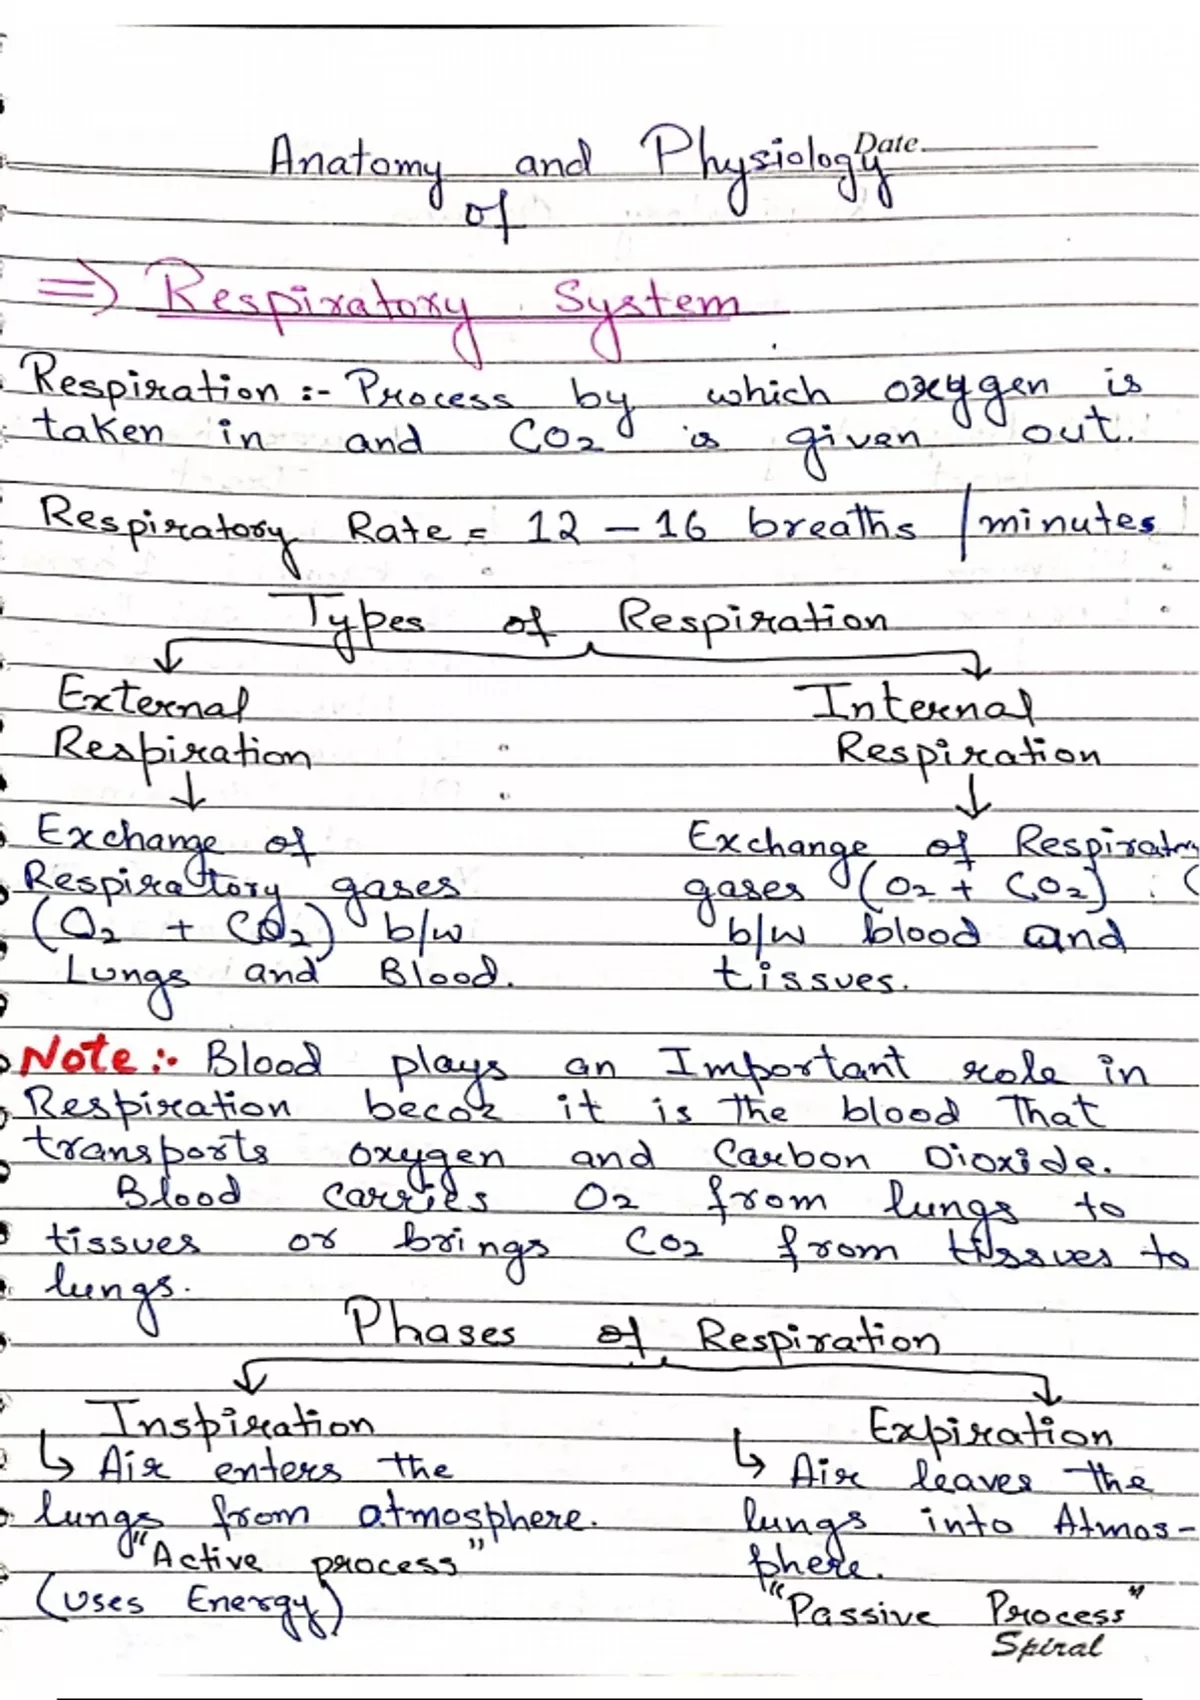 Date
Anatomy and Physiology
of
⇒ Respiratory System
Respiration :- Process by which oxygen is
taken in and CO2 is given out.
Respiratory Rate = 12 – 16 breaths / minutes
Types of Respiration
External Internal
Respiration Respiration
Exchange of Exchange of Respiratory
Respiratory gases gases (O2 + CO2)
(O2 + CO2) b/w b/w blood and
Lungs and Blood. tissues.
Note :- Blood plays an Important role in
Respiration becoz it is the blood that
transports oxygen and Carbon Dioxide.
Blood carries O2 from lungs to
tissues or brings CO2 from tissues to
lungs.
Phases of Respiration
Inspiration Expiration
↳ Air enters the ↳ Air leaves the
lungs from atmosphere. lungs into Atmos-
"Active process" phere.
(Uses Energy) "Passive Process"
Spiral